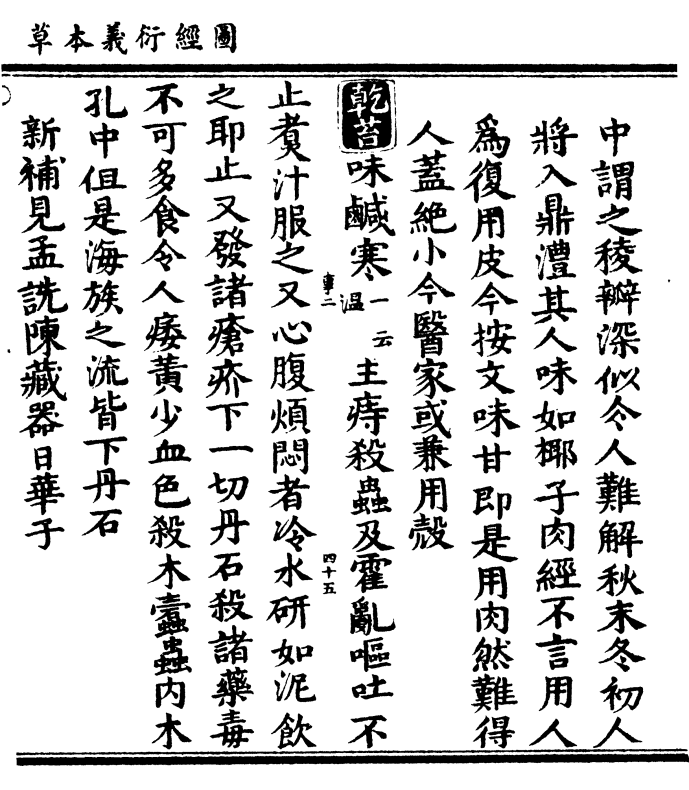 圖經衍義本草
中謂之稜瓣深似令人難解秋末冬初人
將入鼎澧其人味如椰子肉經不言用人
爲復用皮今按文味甘即是用肉然難得
人蓋絶小今醫家或兼用殼
乾苔味鹹寒一云溫主痔殺蟲及霍亂嘔吐不
四十五
止煑汁服之又心腹煩悶者冷水研如泥飲
之耶止又發諸瘡疥下一切丹石殺諸藥毒
不可多食令人痿黃少血色殺木蠹蟲内木
孔中但是海族之流皆下丹石
新補見孟詵陳藏器日華子